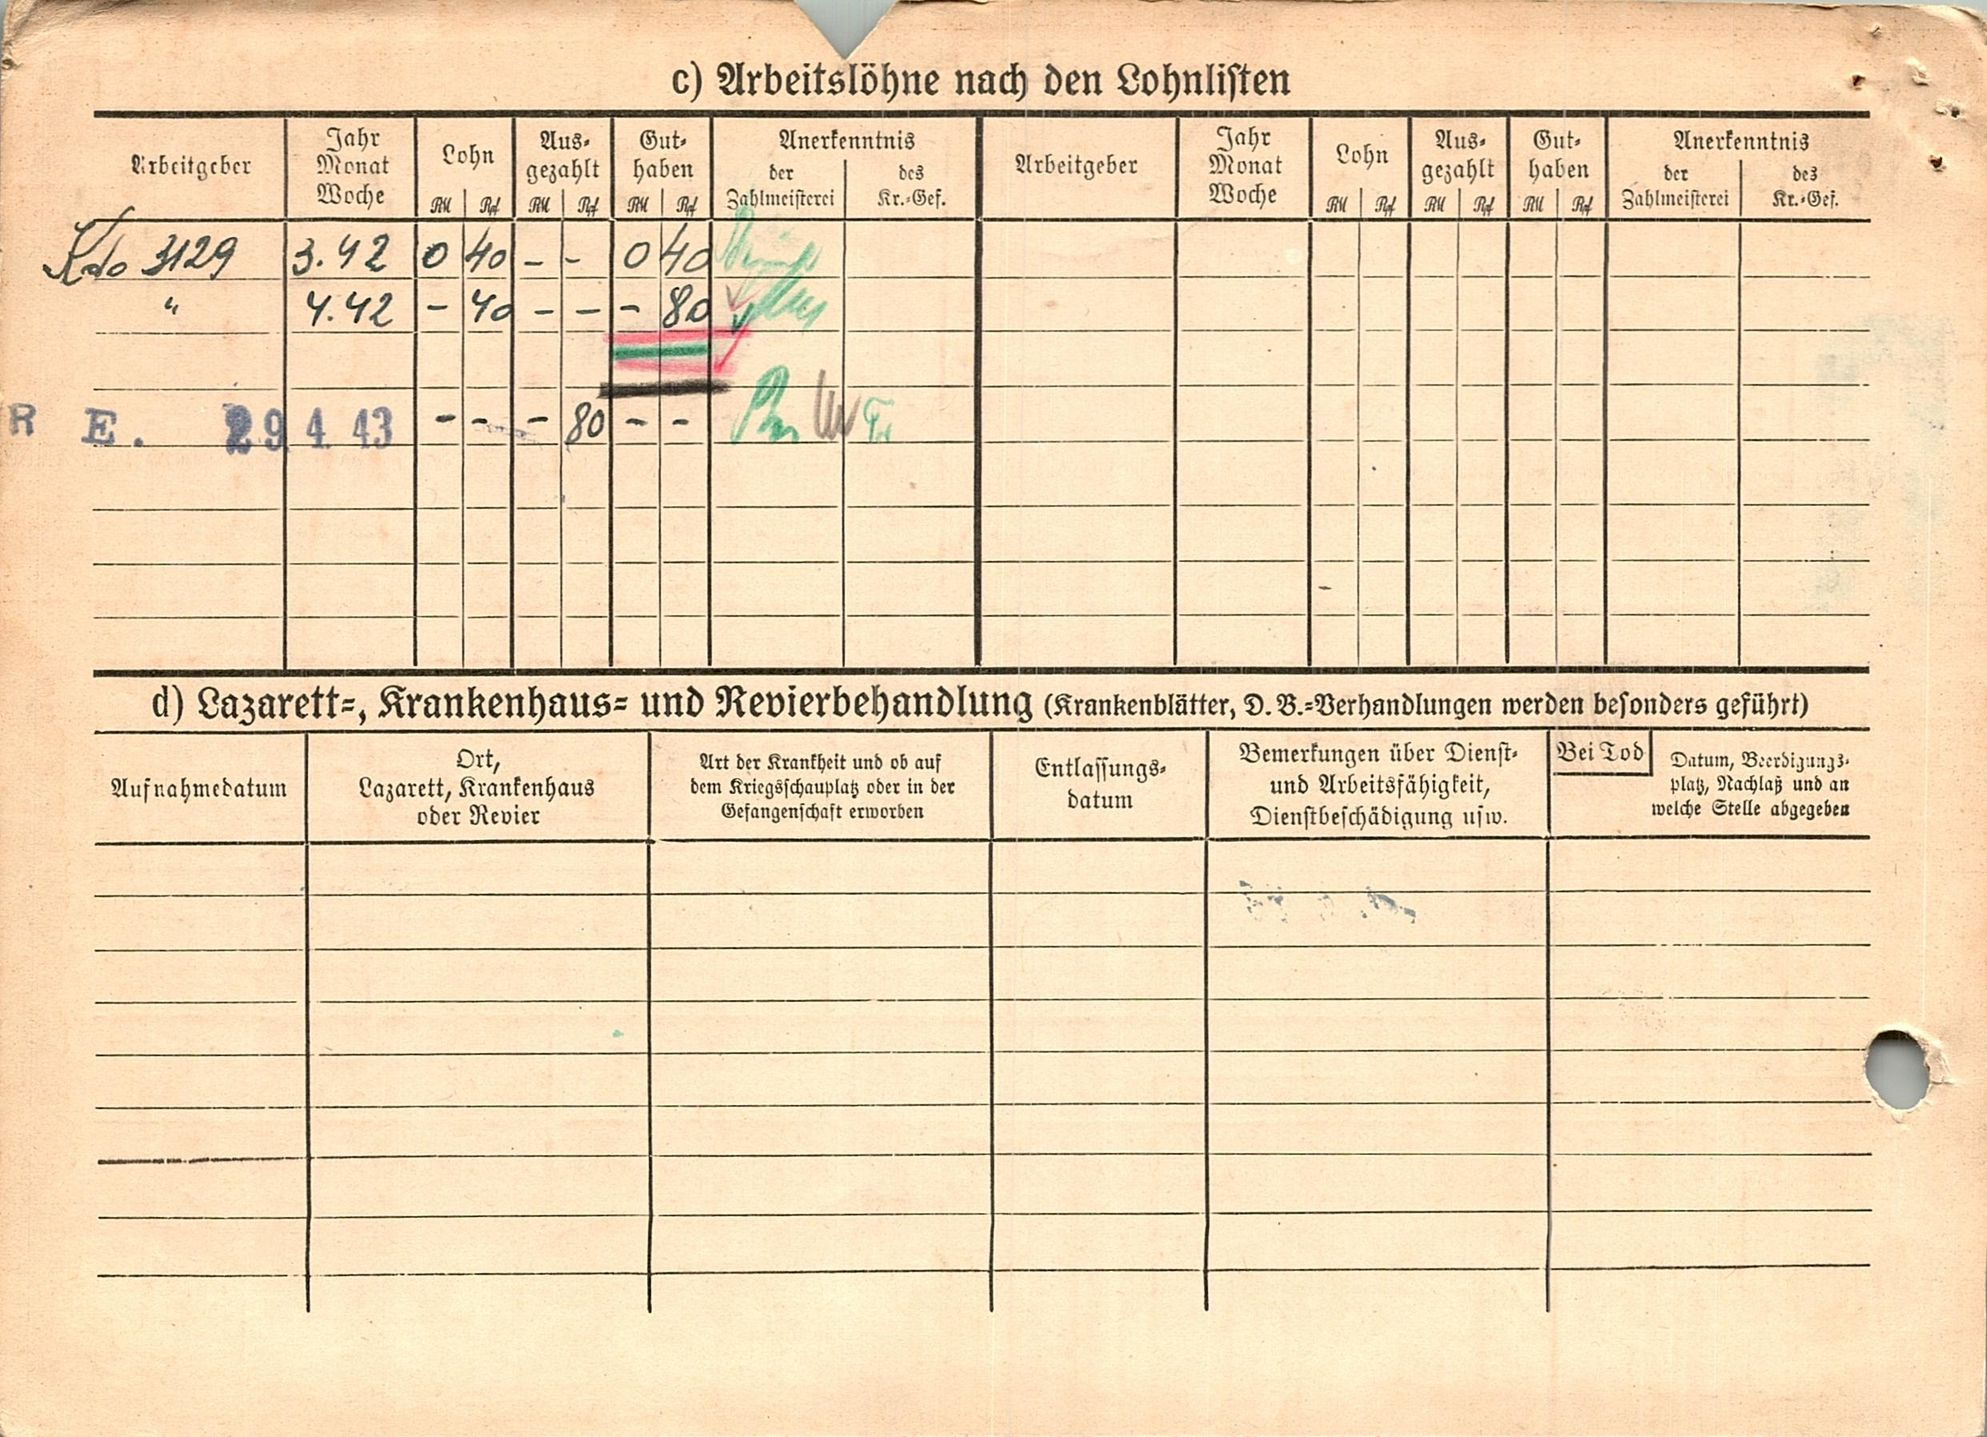 c) Arbeitslöhne nach den Lohnlisten
Arbeitgeber Jahr Monat Woche Lohn Aus- gezahlt Gut- haben Anerkenntnis der Zahlmeisterei des Kr.-Gef. Arbeitgeber Jahr Monat Woche Lohn Aus- gezahlt Gut- haben Anerkenntnis der Zahlmeisterei des Kr.-Gef.
RM Rpf RM Rpf RM Rpf RM Rpf RM Rpf RM Rpf
Kdo 3129 3.42 0 40 - - 0 40
" 4.42 - 40 - - - 80
R E. 29.4.43 - - - 80 - -
d) Lazarett-, Krankenhaus- und Revierbehandlung (Krankenblätter, D. B.-Verhandlungen werden besonders geführt)
Aufnahmedatum
Ort,
Lazarett, Krankenhaus
oder Revier
Art der Krankheit und ob auf
dem Kriegsschauplatz oder in der
Gefangenschaft erworben
Entlassungs-
datum
Bemerkungen über Dienst-
und Arbeitsfähigkeit,
Dienstbeschädigung usw.
Bei Tod
Datum, Beerdigungs-
platz, Nachlaß und an
welche Stelle abgegeben